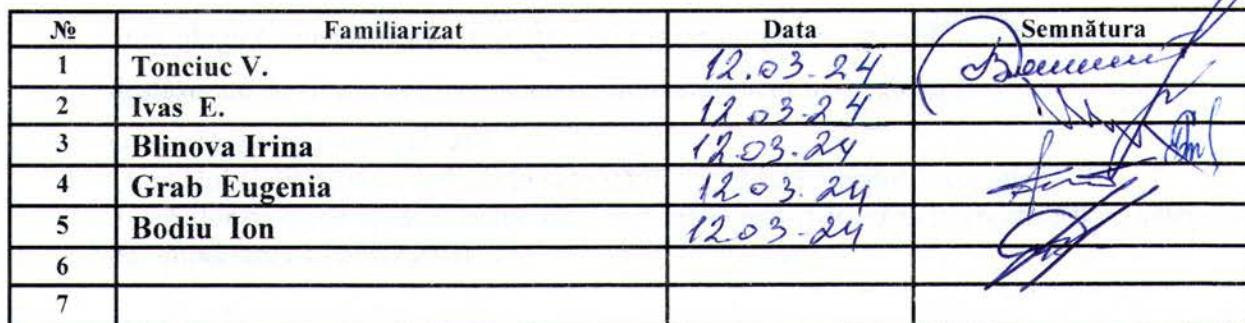 № Familiarizat Data Semnătura
1 Tonciuc V. 12.03.24
2 Ivas E. 12.03.24
3 Blinova Irina 12.03.24
4 Grab Eugenia 12.03.24
5 Bodiu Ion 12.03.24
6
7